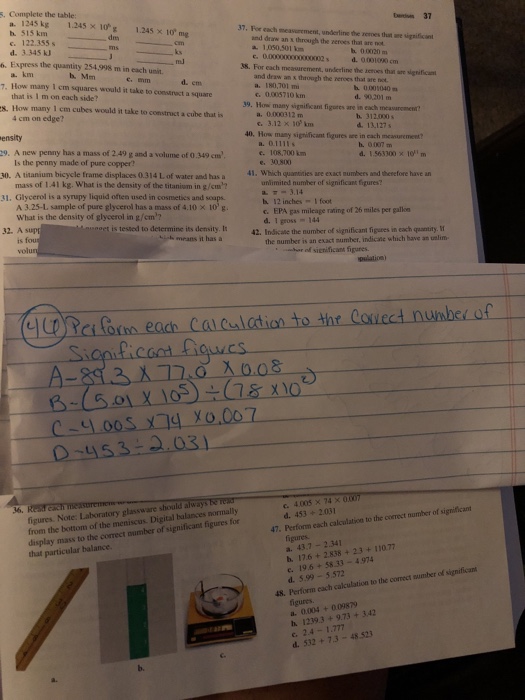 37
5. Complete the table:
a. 1245 kg 1.245 × 10⁶ g 1.245 × 10⁹ mg
b. 515 km dm cm
c. 122.355 s ms ks
d. 3.345 kJ J mJ
6. Express the quantity 254,998 m in each unit.
a. km b. Mm c. mm d. cm
7. How many 1 cm squares would it take to construct a square
that is 1 m on each side?
28. How many 1 cm cubes would it take to construct a cube that is
4 cm on edge?
ensity
29. A new penny has a mass of 2.49 g and a volume of 0.349 cm³.
Is the penny made of pure copper?
30. A titanium bicycle frame displaces 0.314 L of water and has a
mass of 1.41 kg. What is the density of the titanium in g/cm³?
31. Glycerol is a syrupy liquid often used in cosmetics and soaps.
A 3.25-L sample of pure glycerol has a mass of 4.10 × 10³ g.
What is the density of glycerol in g/cm³?
32. A supp is tested to determine its density. It
is foun means it has a
volum
37. For each measurement, underline the zeroes that are significant
and draw an x through the zeroes that are not.
a. 1,050,501 km b. 0.0020 m
c. 0.000000000000002 s d. 0.001090 cm
38. For each measurement, underline the zeroes that are significant
and draw an x through the zeroes that are not.
a. 180,701 mi b. 0.001040 m
c. 0.005710 km d. 90,201 m
39. How many significant figures are in each measurement?
a. 0.000312 m b. 312,000 s
c. 3.12 × 10⁵ km d. 13,127 s
40. How many significant figures are in each measurement?
a. 0.1111 s b. 0.007 m
c. 108,700 km d. 1.563300 × 10¹¹ m
e. 30,800
41. Which quantities are exact numbers and therefore have an
unlimited number of significant figures?
a. π = 3.14
b. 12 inches = 1 foot
c. EPA gas mileage rating of 26 miles per gallon
d. 1 gross = 144
42. Indicate the number of significant figures in each quantity. If
the number is an exact number, indicate which have an unlim-
of significant figures.
46 Perform each calculation to the correct number of
Significant figures
A-89.3 X 77.0 X 0.08
B-(5.01 X 10⁵) ÷ (7.8 X 10²)
C-4.005 X 74 X 0.007
D-453 ÷ 2.031
36. Read each measurement
figures. Note: Laboratory glassware should always be read
from the bottom of the meniscus. Digital balances normally
display mass to the correct number of significant figures for
that particular balance.
a.
b.
c.
c. 4.005 × 74 × 0.007
d. 453 ÷ 2.031
47. Perform each calculation to the correct number of significant
figures.
a. 43.7 − 2.341
b. 17.6 + 2.838 + 2.3 + 110.77
c. 19.6 + 58.33 − 4.974
d. 5.99 − 5.572
48. Perform each calculation to the correct number of significant
figures.
a. 0.004 + 0.09879
b. 1239.3 + 9.73 + 3.42
c. 2.4 − 1.777
d. 532 + 7.3 − 48.523